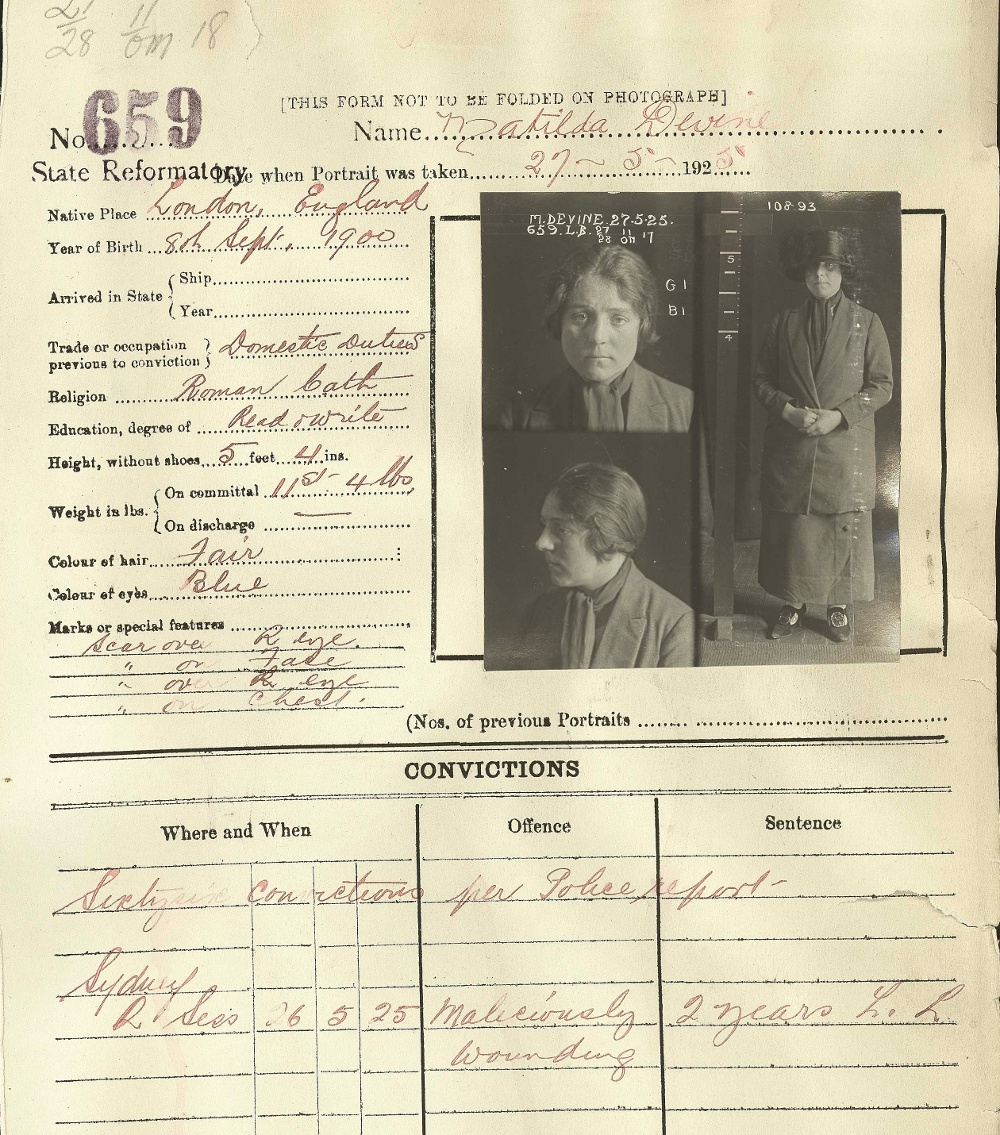 21 11
28 om 18
[THIS FORM NOT TO BE FOLDED ON PHOTOGRAPH]
No. 659
Name Matilda Devine
State Reformatory
Date when Portrait was taken 27 - 5 - 1925
Native Place London, England
Year of Birth 8th Sept. 1900
Arrived in State
Ship
Year
Trade or occupation previous to conviction Domestic Duties
Religion Roman Cath
Education, degree of Read & write
Height, without shoes 5 feet 4 ins.
Weight in lbs.
On committal 11st - 4 lbs
On discharge —
Colour of hair Fair
Colour of eyes Blue
Marks or special features
Scar over R eye.
" on Face
" over R eye
" on Chest.
M. DEVINE. 27-5-25.
659. L.B. 27 11
28 om 17
G1
B1
108-93
5
4
(Nos. of previous Portraits
CONVICTIONS
Where and When
Offence
Sentence
Sixtysix convictions per Police report -
Sydney
Q Sess 26 5 25 Maliciously wounding 2 years L. L.